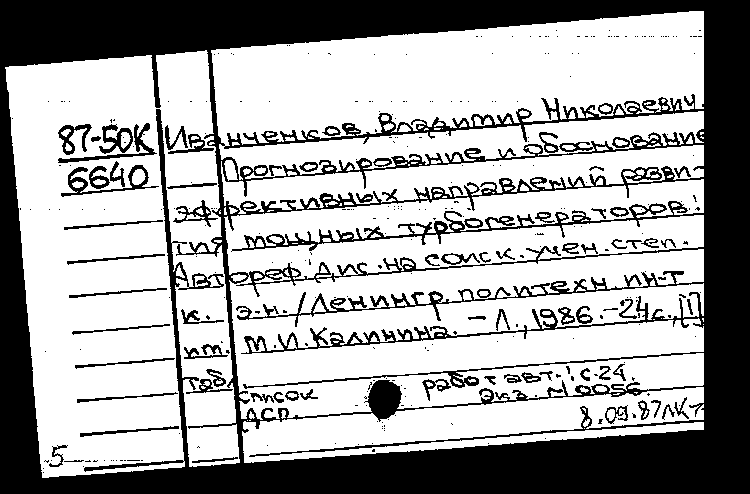 87-50К Иванченков, Владимир Николаевич.
6640 Прогнозирование и обоснование
эффективных направлений разви-
тия мощных турбогенераторов:
Автореф. дис. на соиск. учен. степ.
к. э.н. / Ленингр. политехн ин-т
им. М.И. Калинина. – Л., 1986. – 24 с., [1]
табл.
Список работ авт.: с. 24.
ДСП. Экз. N 0056
8.09.87
5